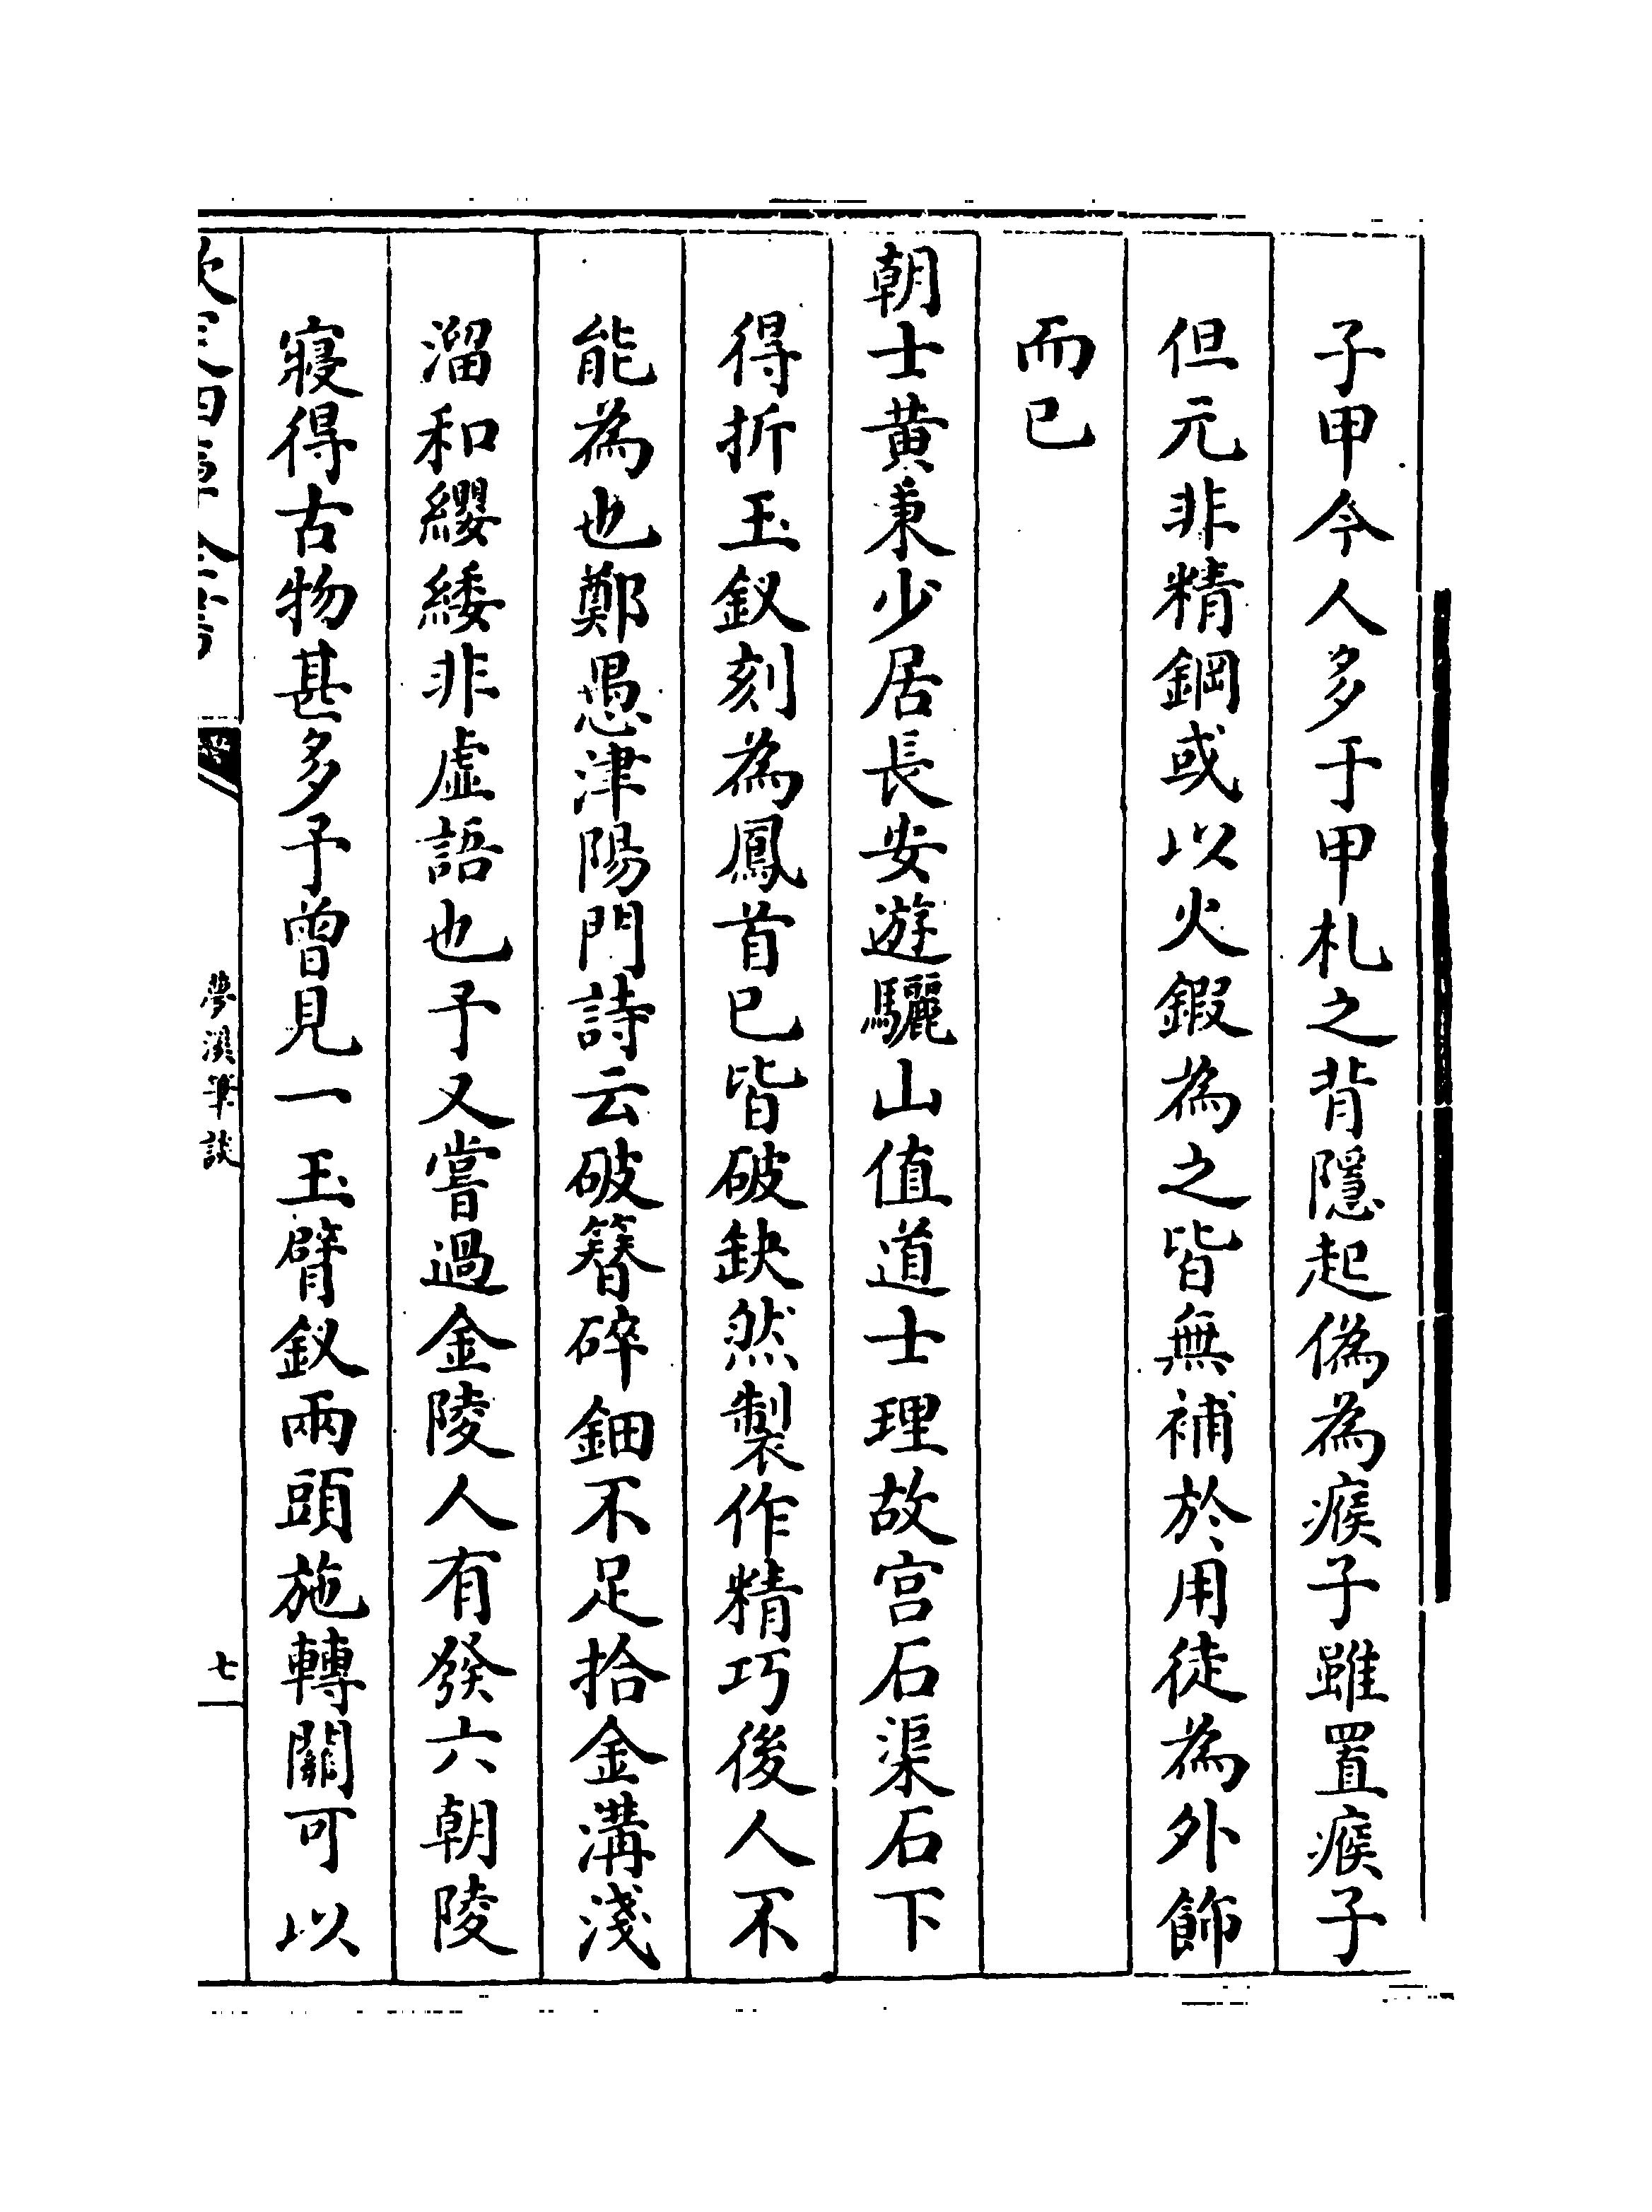 子甲今人多于甲札之背隱起偽為瘊子雖置瘊子
但元非精鋼或以火鍜為之皆無補於用徒為外飾
而已
朝士黄秉少居長安遊驪山值道士理故宫石渠石下
得折玉釵刻為鳳首已皆破缺然製作精巧後人不
能為也鄭愚津陽門詩云破簪碎鈿不足拾金溝淺
溜和纓緌非虚語也予又嘗過金陵人有發六朝陵
寢得古物甚多予曾見一玉臂釵兩頭施轉關可以
欽定四庫全書
夢溪筆談
七